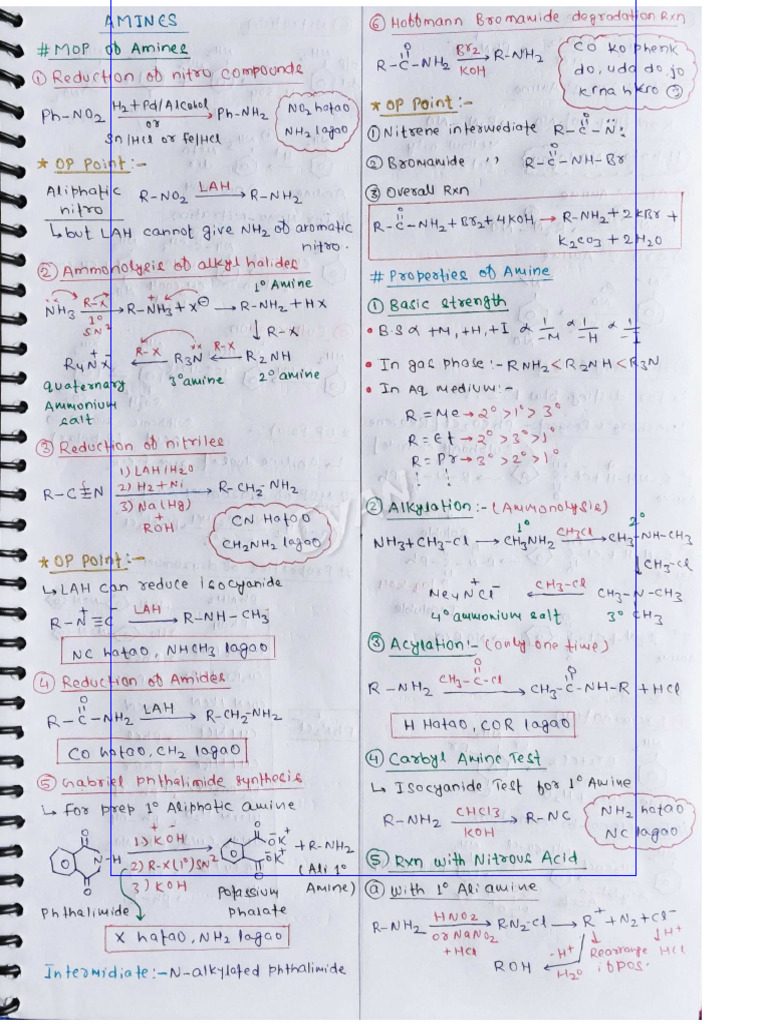 AMINES
# MOP of Amines
① Reduction of nitro compounds
Ph-NO2 H2+Pd/Alcohol or Sn/HCl or Fe/HCl → Ph-NH2
NO2 hatao
NH2 lagao
* OP Point:-
Aliphatic nitro R-NO2 LAH → R-NH2
↳ but LAH cannot give NH2 of aromatic
nitro.
② Ammonolysis of alkyl halides
1° Amine
NH3 R-X 1° SN2 → R-NH3 + X⊖ → R-NH2 + HX
↓ R-X
R4NX ← R-X R3N ← R-X R2NH
quaternary Ammonium salt 3° amine 2° amine
③ Reduction of nitriles
R-C≡N 1) LAH/H2O 2) H2+Ni 3) Na(Hg) + ROH → R-CH2-NH2
CN Hatao
CH2NH2 lagao
* OP Point:-
↳ LAH can reduce isocyanide
R-N≡C LAH → R-NH-CH3
NC hatao, NHCH3 lagao
④ Reduction of Amides
O
R-C-NH2 LAH → R-CH2-NH2
CO hatao, CH2 lagao
⑤ Gabriel phthalimide synthesis
↳ for prep 1° Aliphatic amine
O O
N-H 1) KOH 2) R-X(1°) SN2 3) KOH → OK+ OK+ + R-NH2
(Ali 1° Amine)
O O
Phthalimide Potassium phalate
X hatao, NH2 lagao
Intermidiate:- N-alkylated phthalimide
⑥ Hoffmann Bromamide degradation Rxn
O
R-C-NH2 Br2 KOH → R-NH2
CO ko phenk
do, uda do, jo
krna h kro
* OP Point:-
① Nitrene intermediate R-C-N:
② Bromamide ,, R-C-NH-Br
③ Overall Rxn
R-C-NH2 + Br2 + 4KOH → R-NH2 + 2KBr +
K2CO3 + 2H2O
# Properties of Amine
① Basic strength
• B.S ∝ +M, +H, +I ∝ 1/-M ∝ 1/-H ∝ 1/-I
• In gas phase:- RNH2 < R2NH < R3N
• In Aq medium:-
R = Me → 2° > 1° > 3°
R = Et → 2° > 3° > 1°
R = Pr → 3° > 2° > 1°
② Alkylation:- (Ammonolysis)
1° 2°
NH3 + CH3-Cl → CH3NH2 CH3Cl → CH3-NH-CH3
↓ CH3-Cl
Me4NCl ← CH3-Cl CH3-N-CH3
4° ammonium salt 3° CH3
③ Acylation:- (only one time)
R-NH2 CH3-C-Cl → CH3-C-NH-R + HCl
H Hatao, COR lagao
④ Carbyl Amine Test
↳ Isocyanide Test for 1° Amine
R-NH2 CHCl3 KOH → R-NC
NH2 hatao
NC lagao
⑤ Rxn with Nitrous Acid
ⓐ with 1° Ali amine
R-NH2 HNO2 or NaNO2 + HCl → RN2-Cl → R+ + N2 + Cl-
↓ H+
HCl
Rearrange
if pos.
ROH ← -H+ H2O